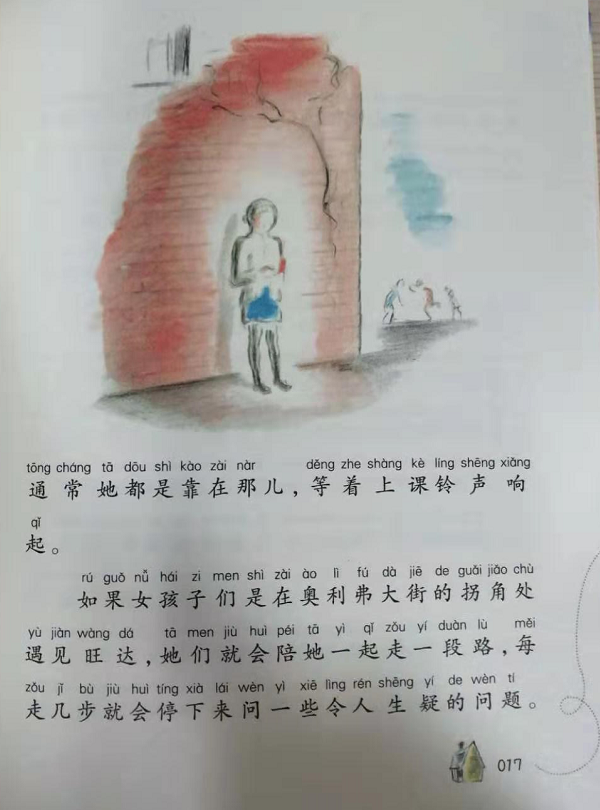 tōng cháng tā dōu shì kào zài nàr děng zhe shàng kè líng shēng xiǎng
通常她都是靠在那儿,等着上课铃声响
qǐ
起。
rú guǒ nǚ hái zi men shì zài ào lì fú dà jiē de guǎi jiǎo chù
如果女孩子们是在奥利弗大街的拐角处
yù jiàn wàng dá tā men jiù huì péi tā yì qǐ zǒu yí duàn lù měi
遇见旺达,她们就会陪她一起走一段路,每
zǒu jǐ bù jiù huì tíng xià lái wèn yì xiē lìng rén shēng yí de wèn tí
走几步就会停下来问一些令人生疑的问题。
017